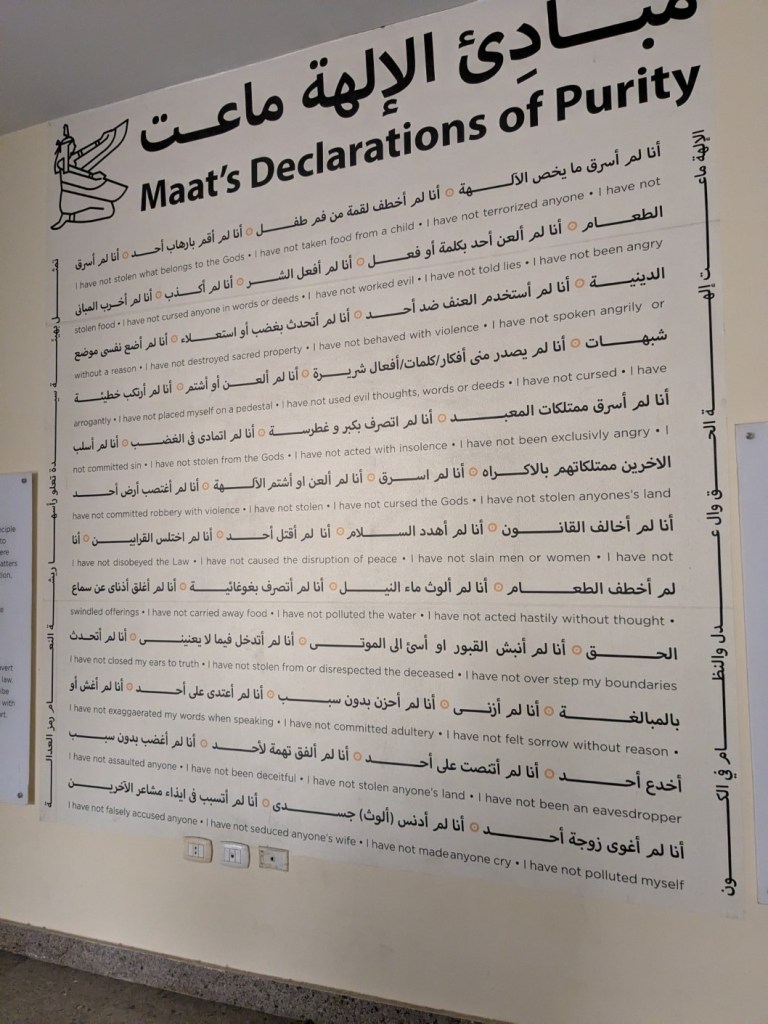 مبـــادِئ الإلهة ماعـت
Maat's Declarations of Purity
أنا لم أسرق ما يخص الآلـــهة ○ أنا لم أخطف لقمة من فم طفــل ○ أنا لم أقم بارهاب أحــد ○ أنا لم أسرق
I have not stolen what belongs to the Gods • I have not taken food from a child • I have not terrorized anyone • I have not
الطعــام ○ أنا لم ألعن أحد بكلمة أو فعــل ○ أنا لم أفعل الشــر ○ أنا لم أكــذب ○ أنا لم أخرب المبانى
stolen food • I have not cursed anyone in words or deeds • I have not worked evil • I have not told lies • I have not been angry
الدينيــة ○ أنا لم أستخدم العنف ضد أحــد ○ أنا لم أتحدث بغضب أو استعــلاء ○ أنا لم أضع نفسى موضع
without a reason • I have not destroyed sacred property • I have not behaved with violence • I have not spoken angrily or
شبهــات ○ أنا لم يصدر منى أفكار/كلمات/أفعال شريــرة ○ أنا لم ألعــن أو أشتم ○ أنا لم أرتكب خطيئــة
arrogantly • I have not placed myself on a pedestal • I have not used evil thoughts, words or deeds • I have not cursed • I have
أنا لم أسرق ممتلكات المعبــد ○ أنا لم اتصرف بكبر و غطرســة ○ أنا لم اتمادى فى الغضــب ○ أنا لم أسلب
not committed sin • I have not stolen from the Gods • I have not acted with insolence • I have not been exclusivly angry • I
الاخرين ممتلكاتهم بالاكــراه ○ أنا لم اســرق ○ أنا لم ألعن او أشتم الآلــهة ○ أنا لم أغتصب أرض أحــد
have not committed robbery with violence • I have not stolen • I have not cursed the Gods • I have not stolen anyones's land
أنا لم أخالف القانــون ○ أنا لم أهدد الســلام ○ أنا لم أقتل أحــد ○ أنا لم اختلس القرابيــن ○ أنا
I have not disobeyed the Law • I have not caused the disruption of peace • I have not slain men or women • I have not
لم أخطف الطعــام ○ أنا لم ألوث ماء النيــل ○ أنا لم أتصرف بغوغائيــة ○ أنا لم أغلق أذناى عن سماع
swindled offerings • I have not carried away food • I have not polluted the water • I have not acted hastily without thought •
الحــق ○ أنا لم أنبش القبور او أسئ الى الموتــى ○ أنا لم أتدخل فيما لا يعنينــى ○ أنا لم أتحدث
I have not closed my ears to truth • I have not stolen from or disrespected the deceased • I have not over step my boundaries
بالمبالغــة ○ أنا لم أزنــى ○ أنا لم أحزن بدون سبــب ○ أنا لم أعتدى على أحــد ○ أنا لم أغش أو
I have not exaggaerated my words when speaking • I have not committed adultery • I have not felt sorrow without reason •
أخدع أحــد ○ أنا لم أتنصت على أحــد ○ أنا لم ألفق تهمة لأحــد ○ أنا لم أغضب بدون سبــب
I have not assaulted anyone • I have not been deceitful • I have not stolen anyone's land • I have not been an eavesdropper
أنا لم أغوى زوجة أحــد ○ أنا لم أدنس (ألوث) جســدى ○ أنا لم أتسبب فى ايذاء مشاعر الآخريــن
I have not falsely accused anyone • I have not seduced anyone's wife • I have not made anyone cry • I have not polluted myself
الإلهة ماعــت إلهــة الحــق وال عــدل والنظــام في الكــون
تمثــل بهيئــة سيــدة تعلو رأسهــا ريشة النعــام رمز العدالــة